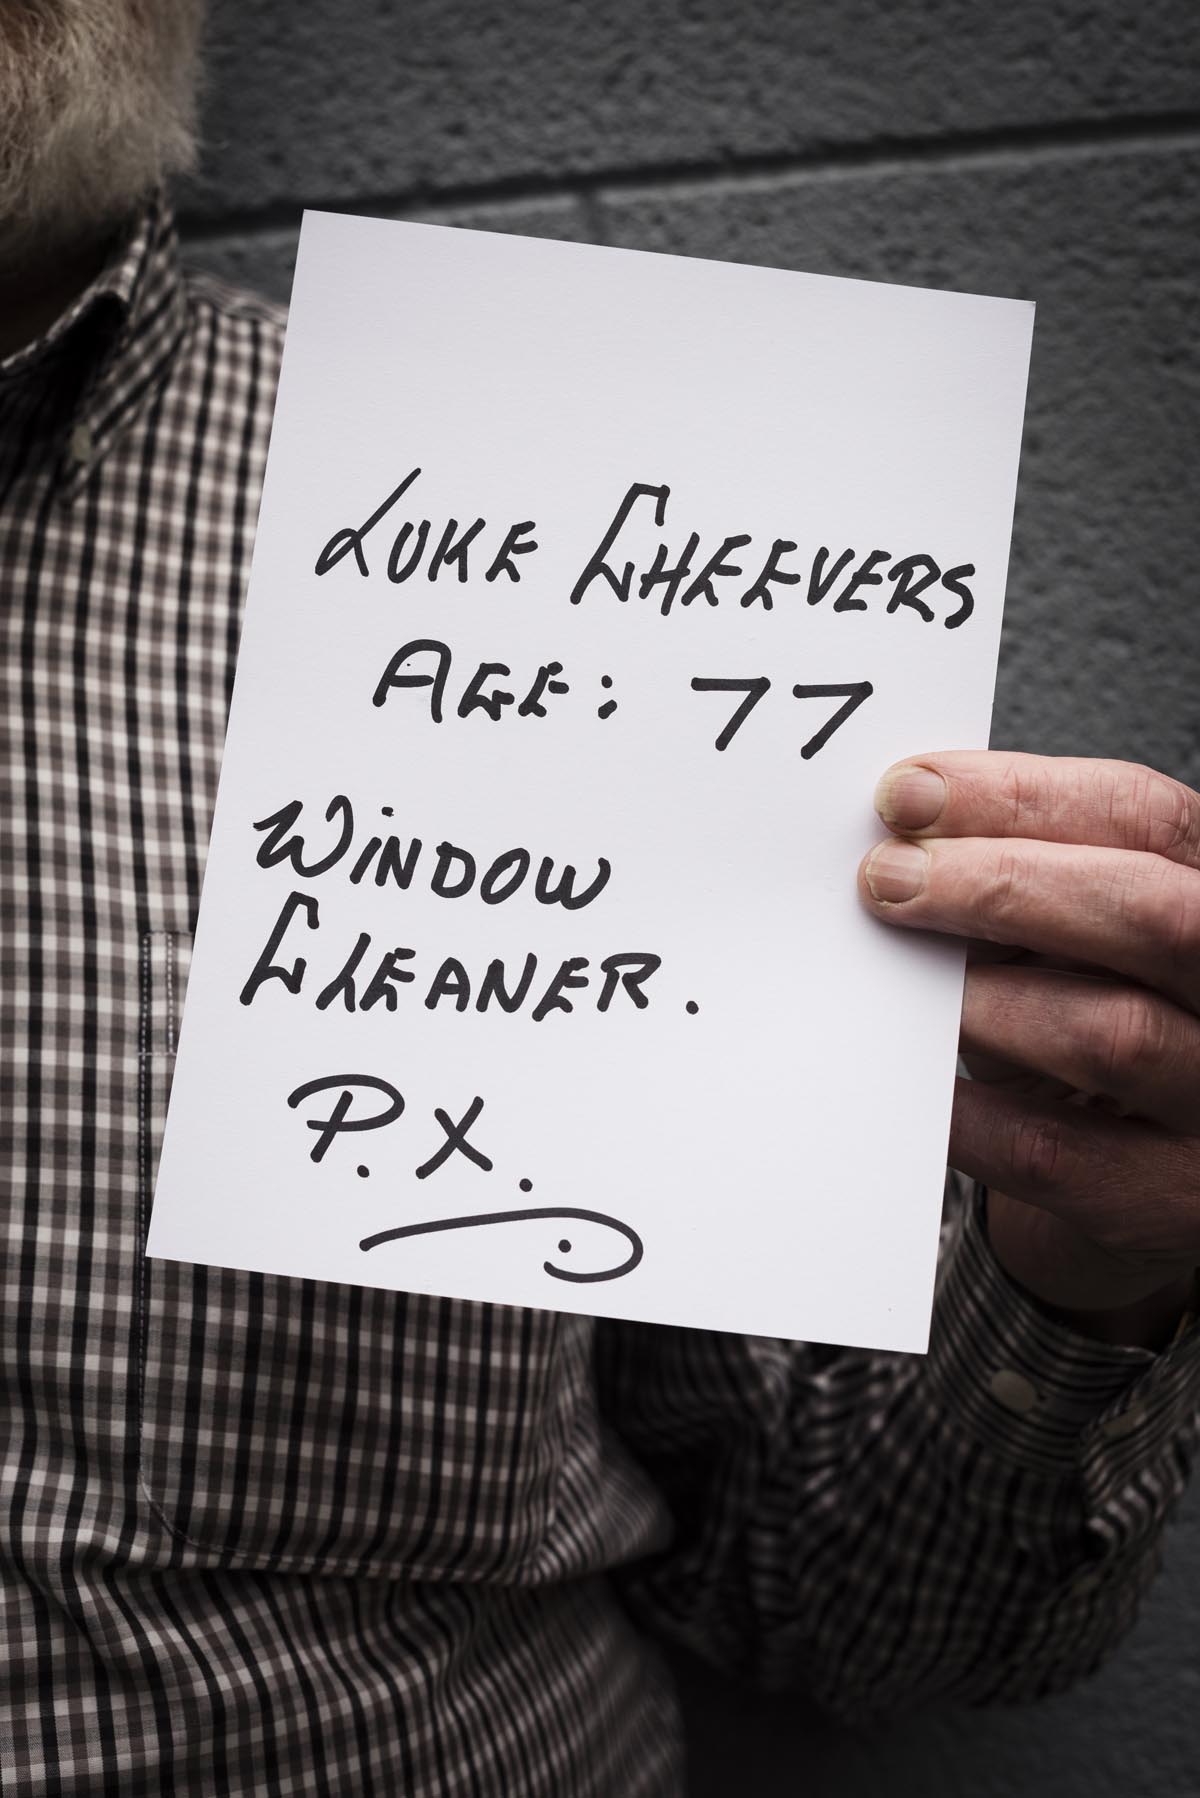 LUKE CHEEVERS
AGE: 77
WINDOW
CLEANER.
P.X.